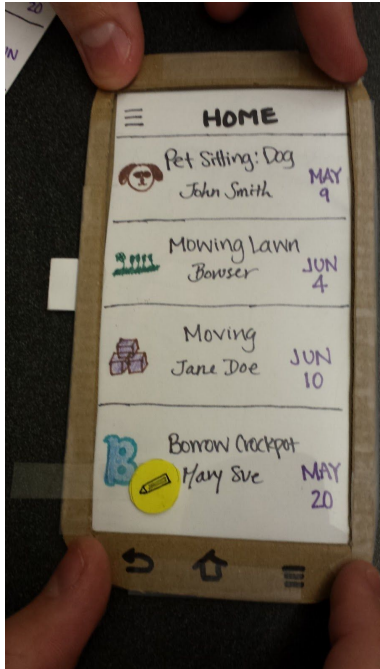 20
UN
HOME
Pet Sitting: Dog
John Smith
MAY
9
Mowing Lawn
Bowser
JUN
4
Moving
Jane Doe
JUN
10
B
Borrow Crockpot
Mary Sue
MAY
20